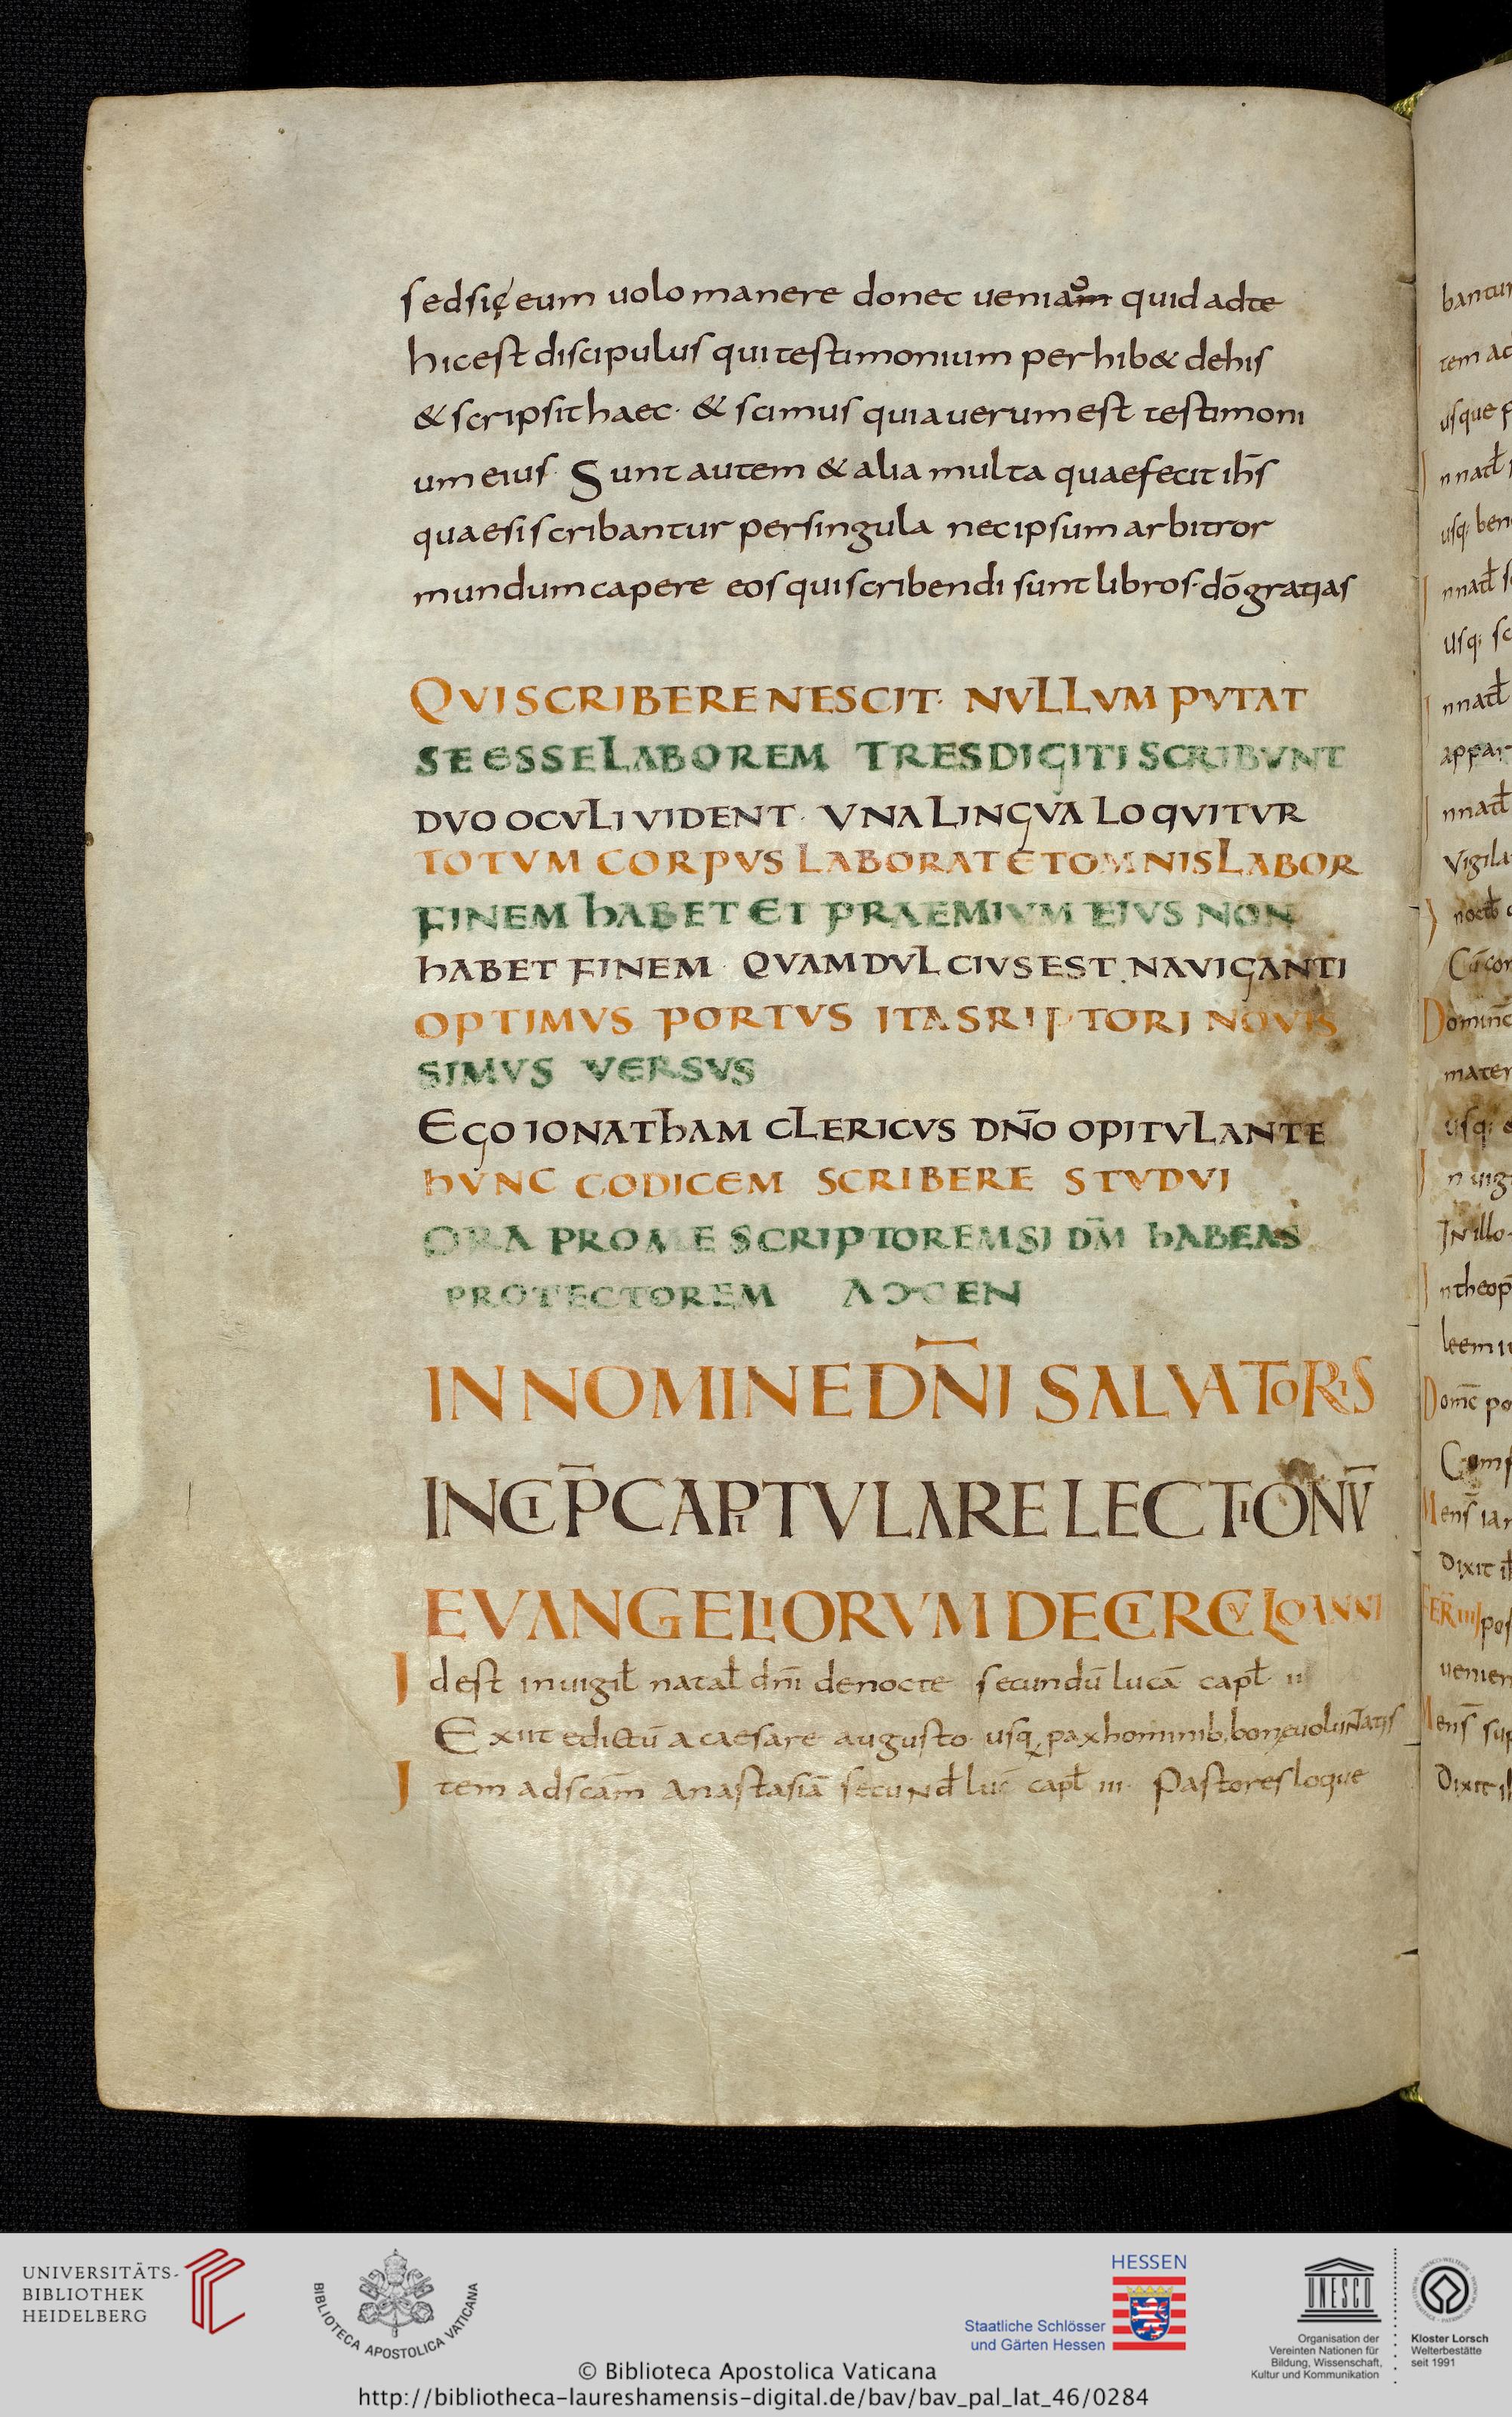 sed sic eum uolo manere donec ueniam quid ad te
hic est discipulus qui testimonium perhib& de his
& scripsit haec · & scimus quia uerum est testimoni
um eius · Sunt autem & alia multa quae fecit ih̅s
quae si scribantur per singula nec ipsum arbitror
mundum capere eos qui scribendi sunt libros · dō gratias
QVI SCRIBERE NESCIT · NVLLVM PVTAT
SE ESSE LABOREM TRES DIGITI SCRIBVNT
DVO OCVLI VIDENT · VNA LINGVA LOQVITVR
TOTVM CORPVS LABORAT ET OMNIS LABOR
FINEM hABET ET PRAEMIVM EIVS NON
hABET FINEM · QVAM DVLCIVS EST NAVIGANTI
OPTIMVS PORTVS ITA SRIPTORI NOVIS
SIMVS VERSVS
EGO IONAThAM CLERICVS DN̅O OPITVLANTE
hVNC CODICEM SCRIBERE STVDVI
ORA PRO ME SCRIPTOREM SI DM̅ hABEAS
PROTECTOREM
IN NOMINE DN̅I SALVATORIS
INCIP̅ CAPITVLARE LECTIONV̅
EVANGELIORVM DE CIRCVLO ANNI
Idest in uigil̅ natal̅ dn̅i de nocte secundū lucā capl̅ · II
Exiit edictū a caesare augusto · usq; pax hominib; bonę uoluNtatis
Item ad scām Anastasiā secuNd̅ luc̅ capl̅ III · Pastores loque
bantur
tem ad
usque
nnatl̅
usq; ben
nnatl̅
usq; sc
nnatl̅
appar
nnatl̅
vigila
noctb̅
Cū cor
Dominic̅
mater
usq;
n uig
IN illo
ntheop
leem
Domc̅ po
Cum
Mens̅ ian
Dixit ih̅
FER̅ IIII pos
uenien
Mens̅ sup
Dixit ih̅
UNIVERSITÄTS-
BIBLIOTHEK
HEIDELBERG
BIBLIOTECA APOSTOLICA VATICANA
HESSEN
Staatliche Schlösser
und Gärten Hessen
UNESCO
Organisation der
Vereinten Nationen für
Bildung, Wissenschaft,
Kultur und Kommunikation
Kloster Lorsch
Welterbestätte
seit 1991
© Biblioteca Apostolica Vaticana
http://bibliotheca-laureshamensis-digital.de/bav/bav_pal_lat_46/0284